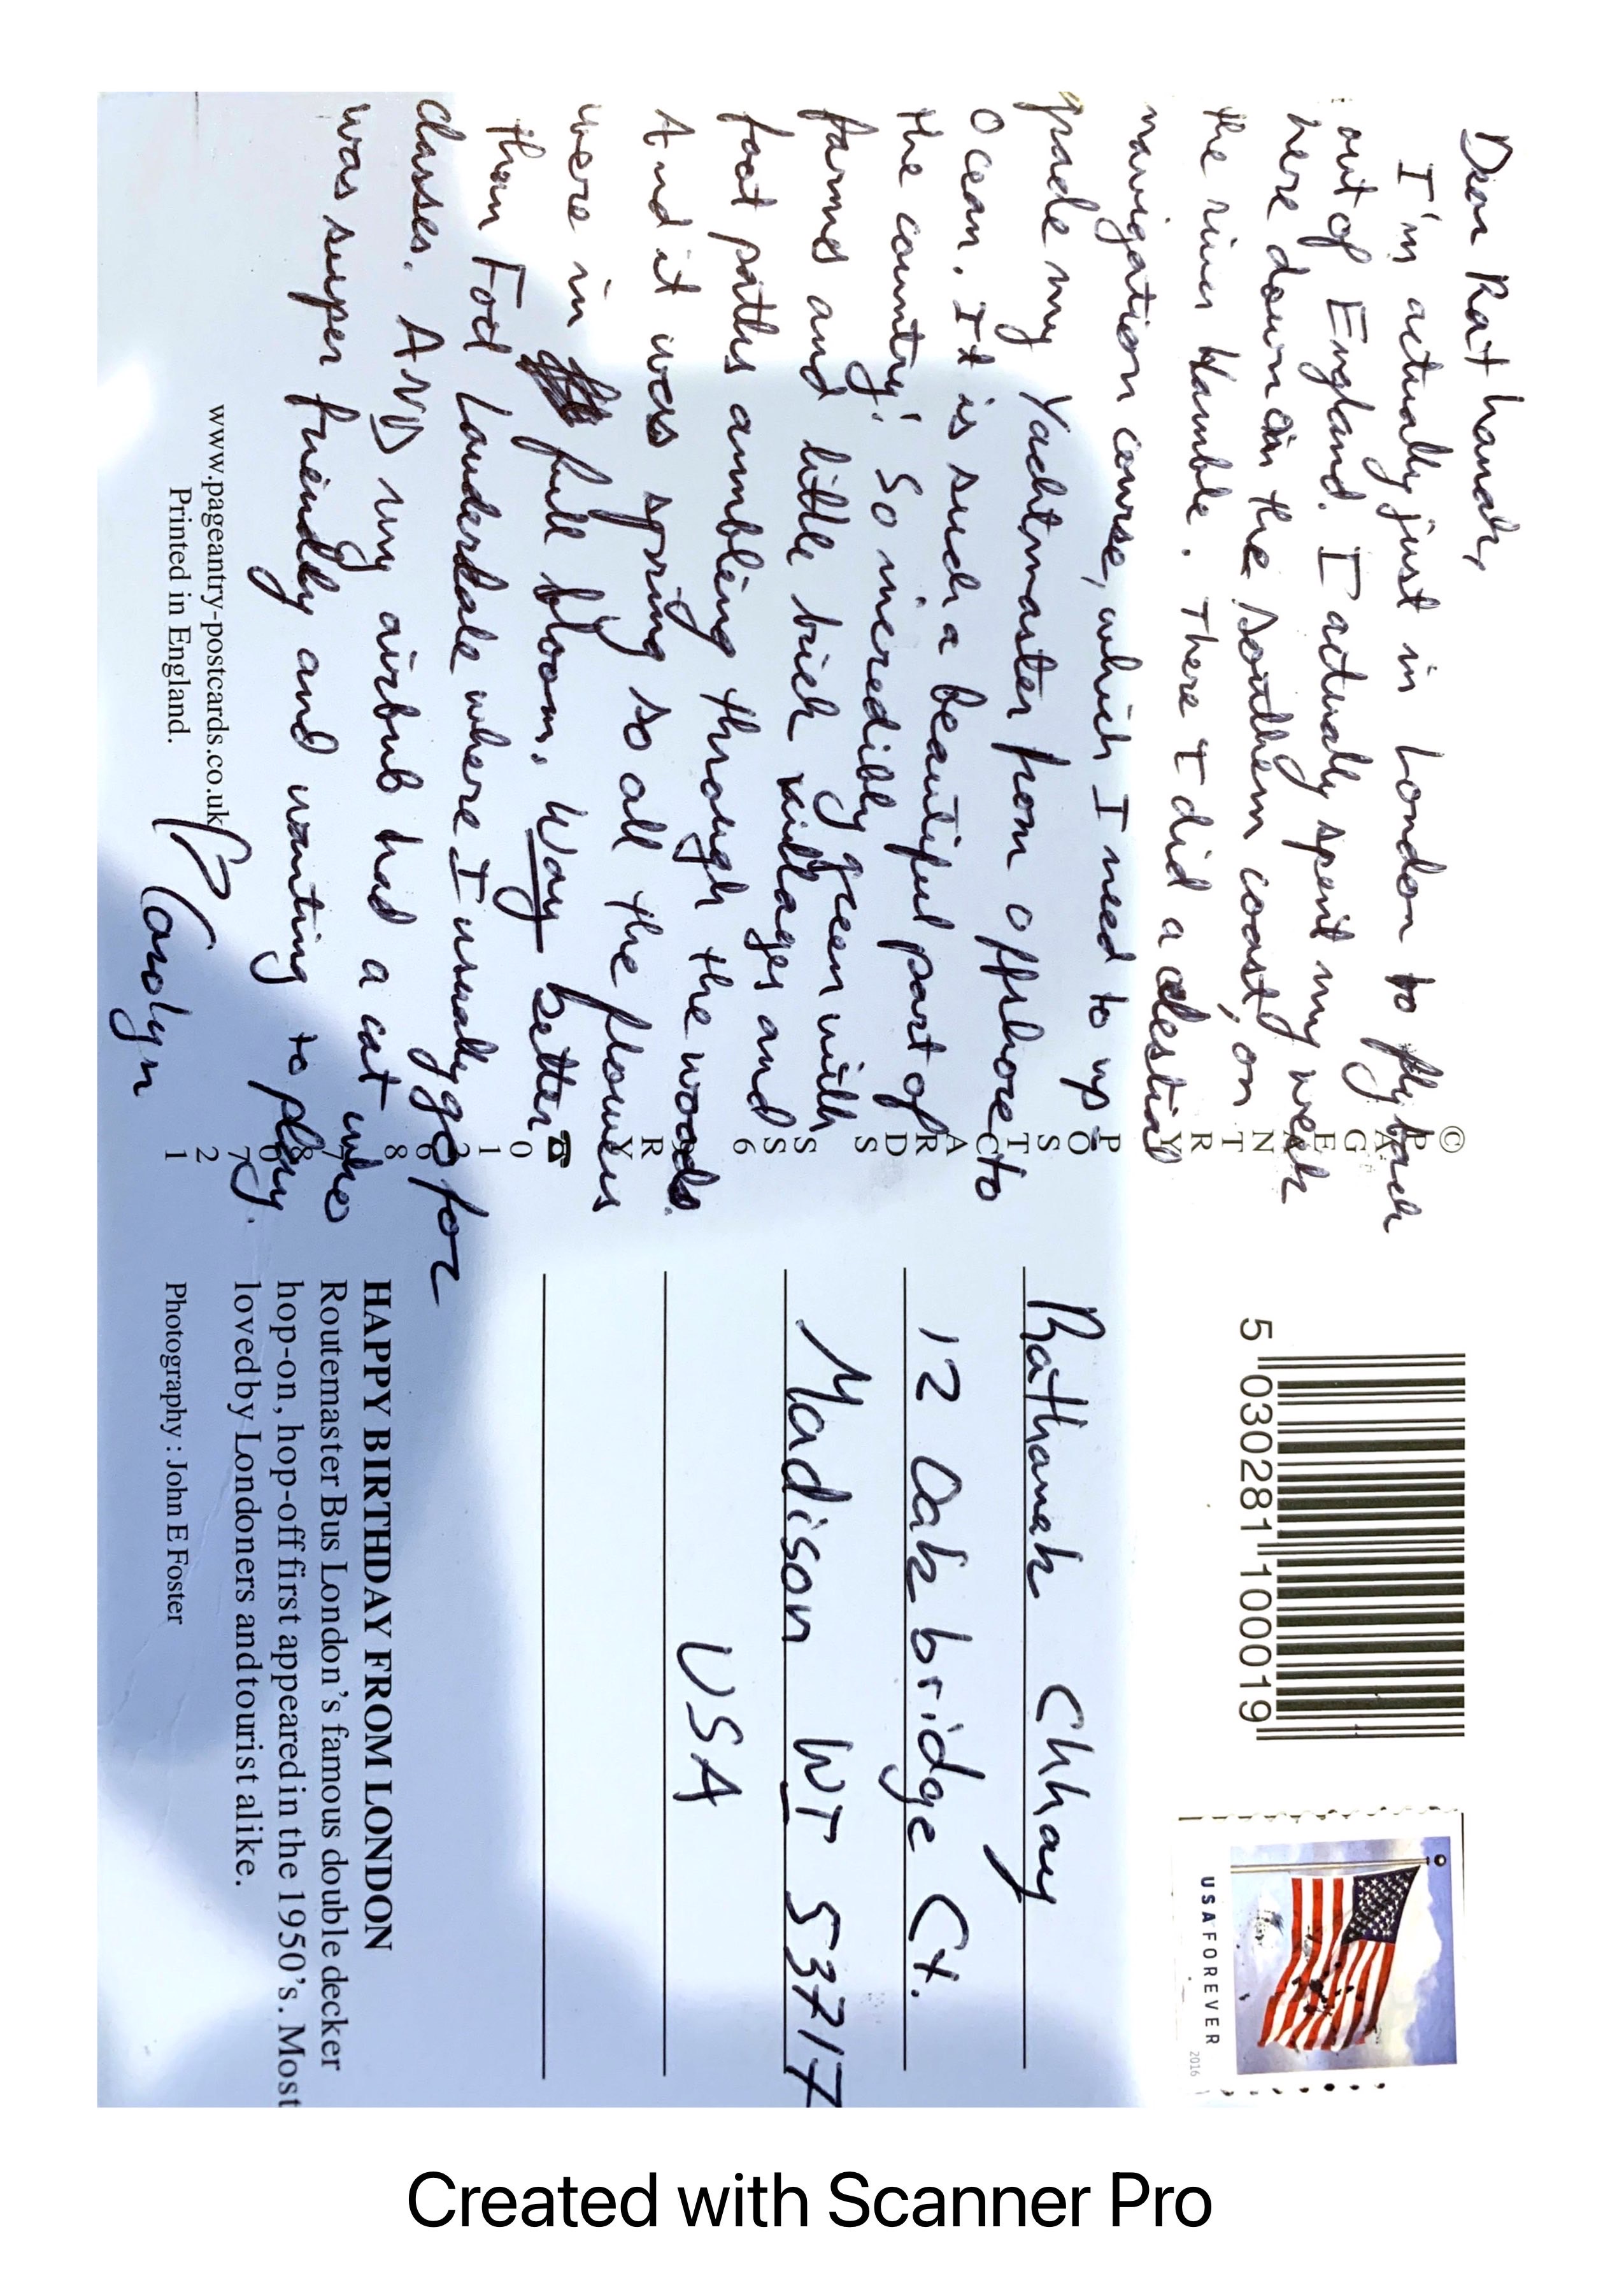 Dear Rathanak,
I'm actually just in London to fly back
out of England. I actually spent my week
here down on the Southern coast, on
the river Hamble. There I did a celestial
navigation course, which I need to up
grade my Yachtmaster from offshore to
Ocean. It is such a beautiful part of
the country! So incredibly green with
farms and little brick villages and
foot paths ambling through the woods.
And it was spring so all the flowers
were in full bloom. Way better
than Fod Lauderdale where I usually go for
classes. AND my airbnb had a cat who
was super friendly and wanting to play.
Carolyn
www.pageantry-postcards.co.uk
Printed in England.
© PAGEANTRY POSTCARDS
5 030281 100019
USA FOREVER
2016
Rathanak Chhay
12 Oakbridge Ct.
Madison WI 53717
USA
HAPPY BIRTHDAY FROM LONDON
Routemaster Bus London's famous double decker
hop-on, hop-off first appeared in the 1950's. Most
loved by Londoners and tourist alike.
Photography : John E Foster
Created with Scanner Pro